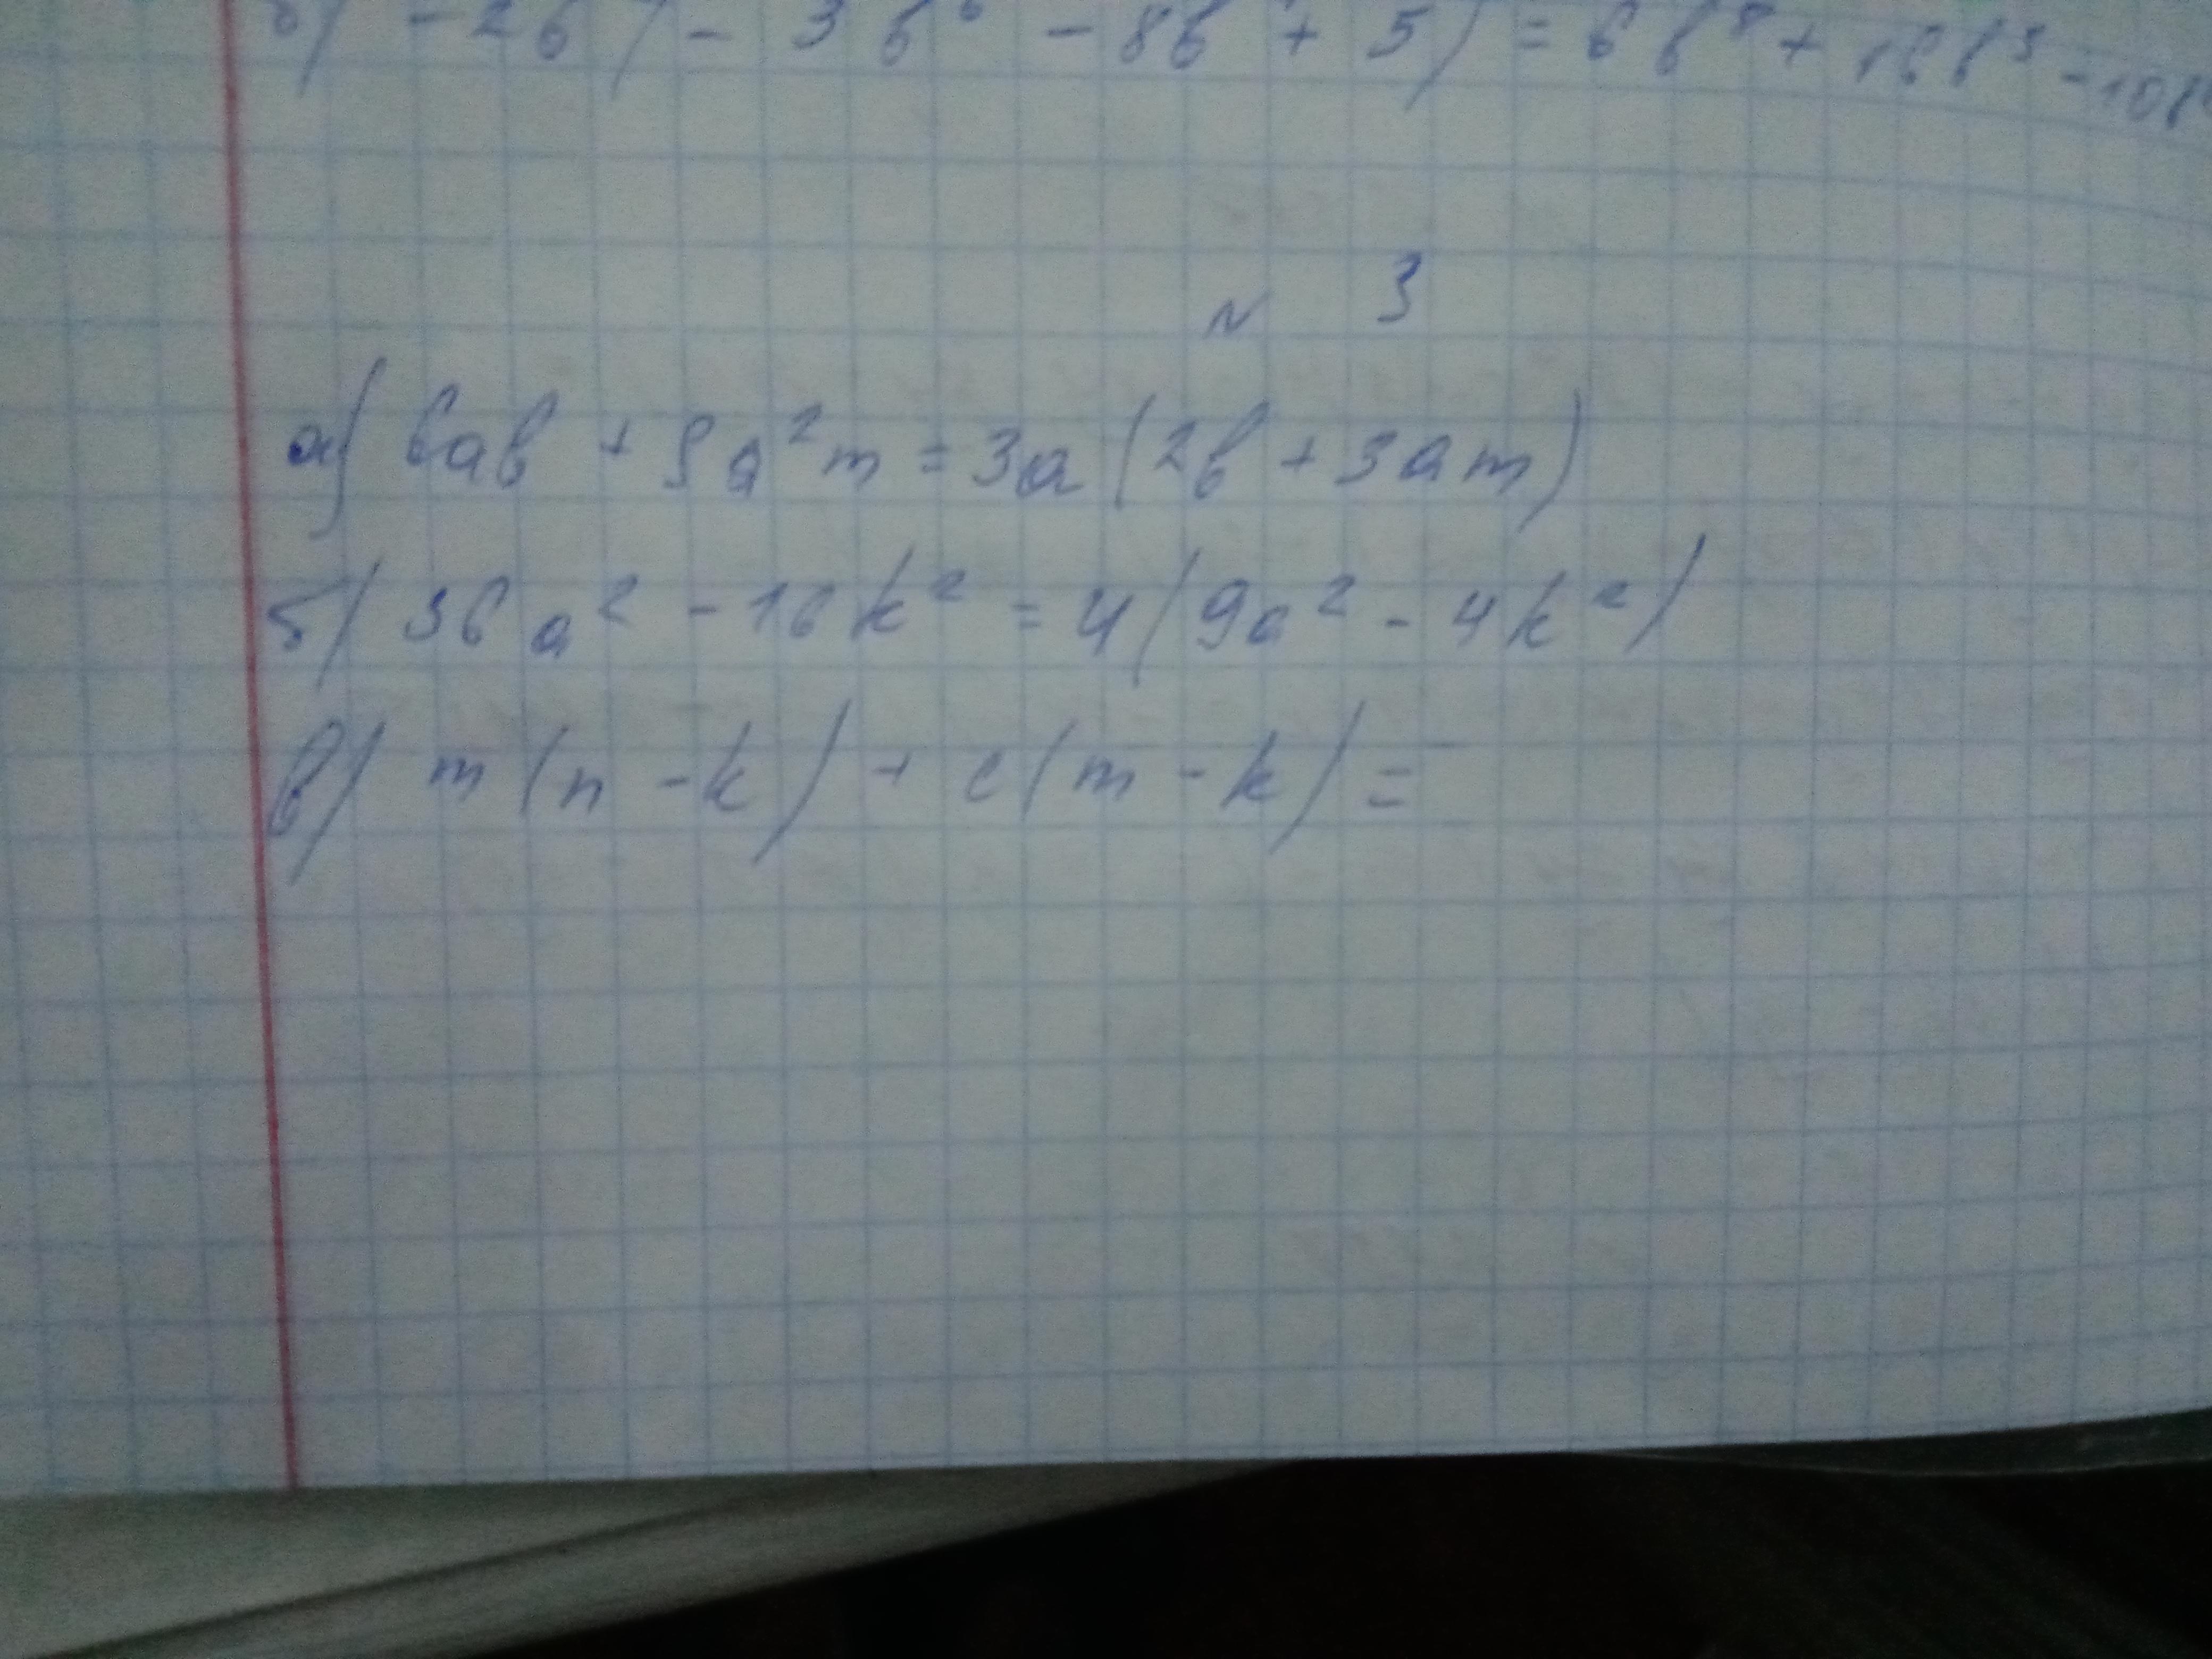 б) -2b( - 3b⁶ - 8b + 5) = 6b⁸ + 16b³ - 10b
N 3
а) 6ab + 9a²m = 3a(2b + 3am)
б) 36a² - 16k² = 4(9a² - 4k²)
в) m(n - k) + c(m - k) =